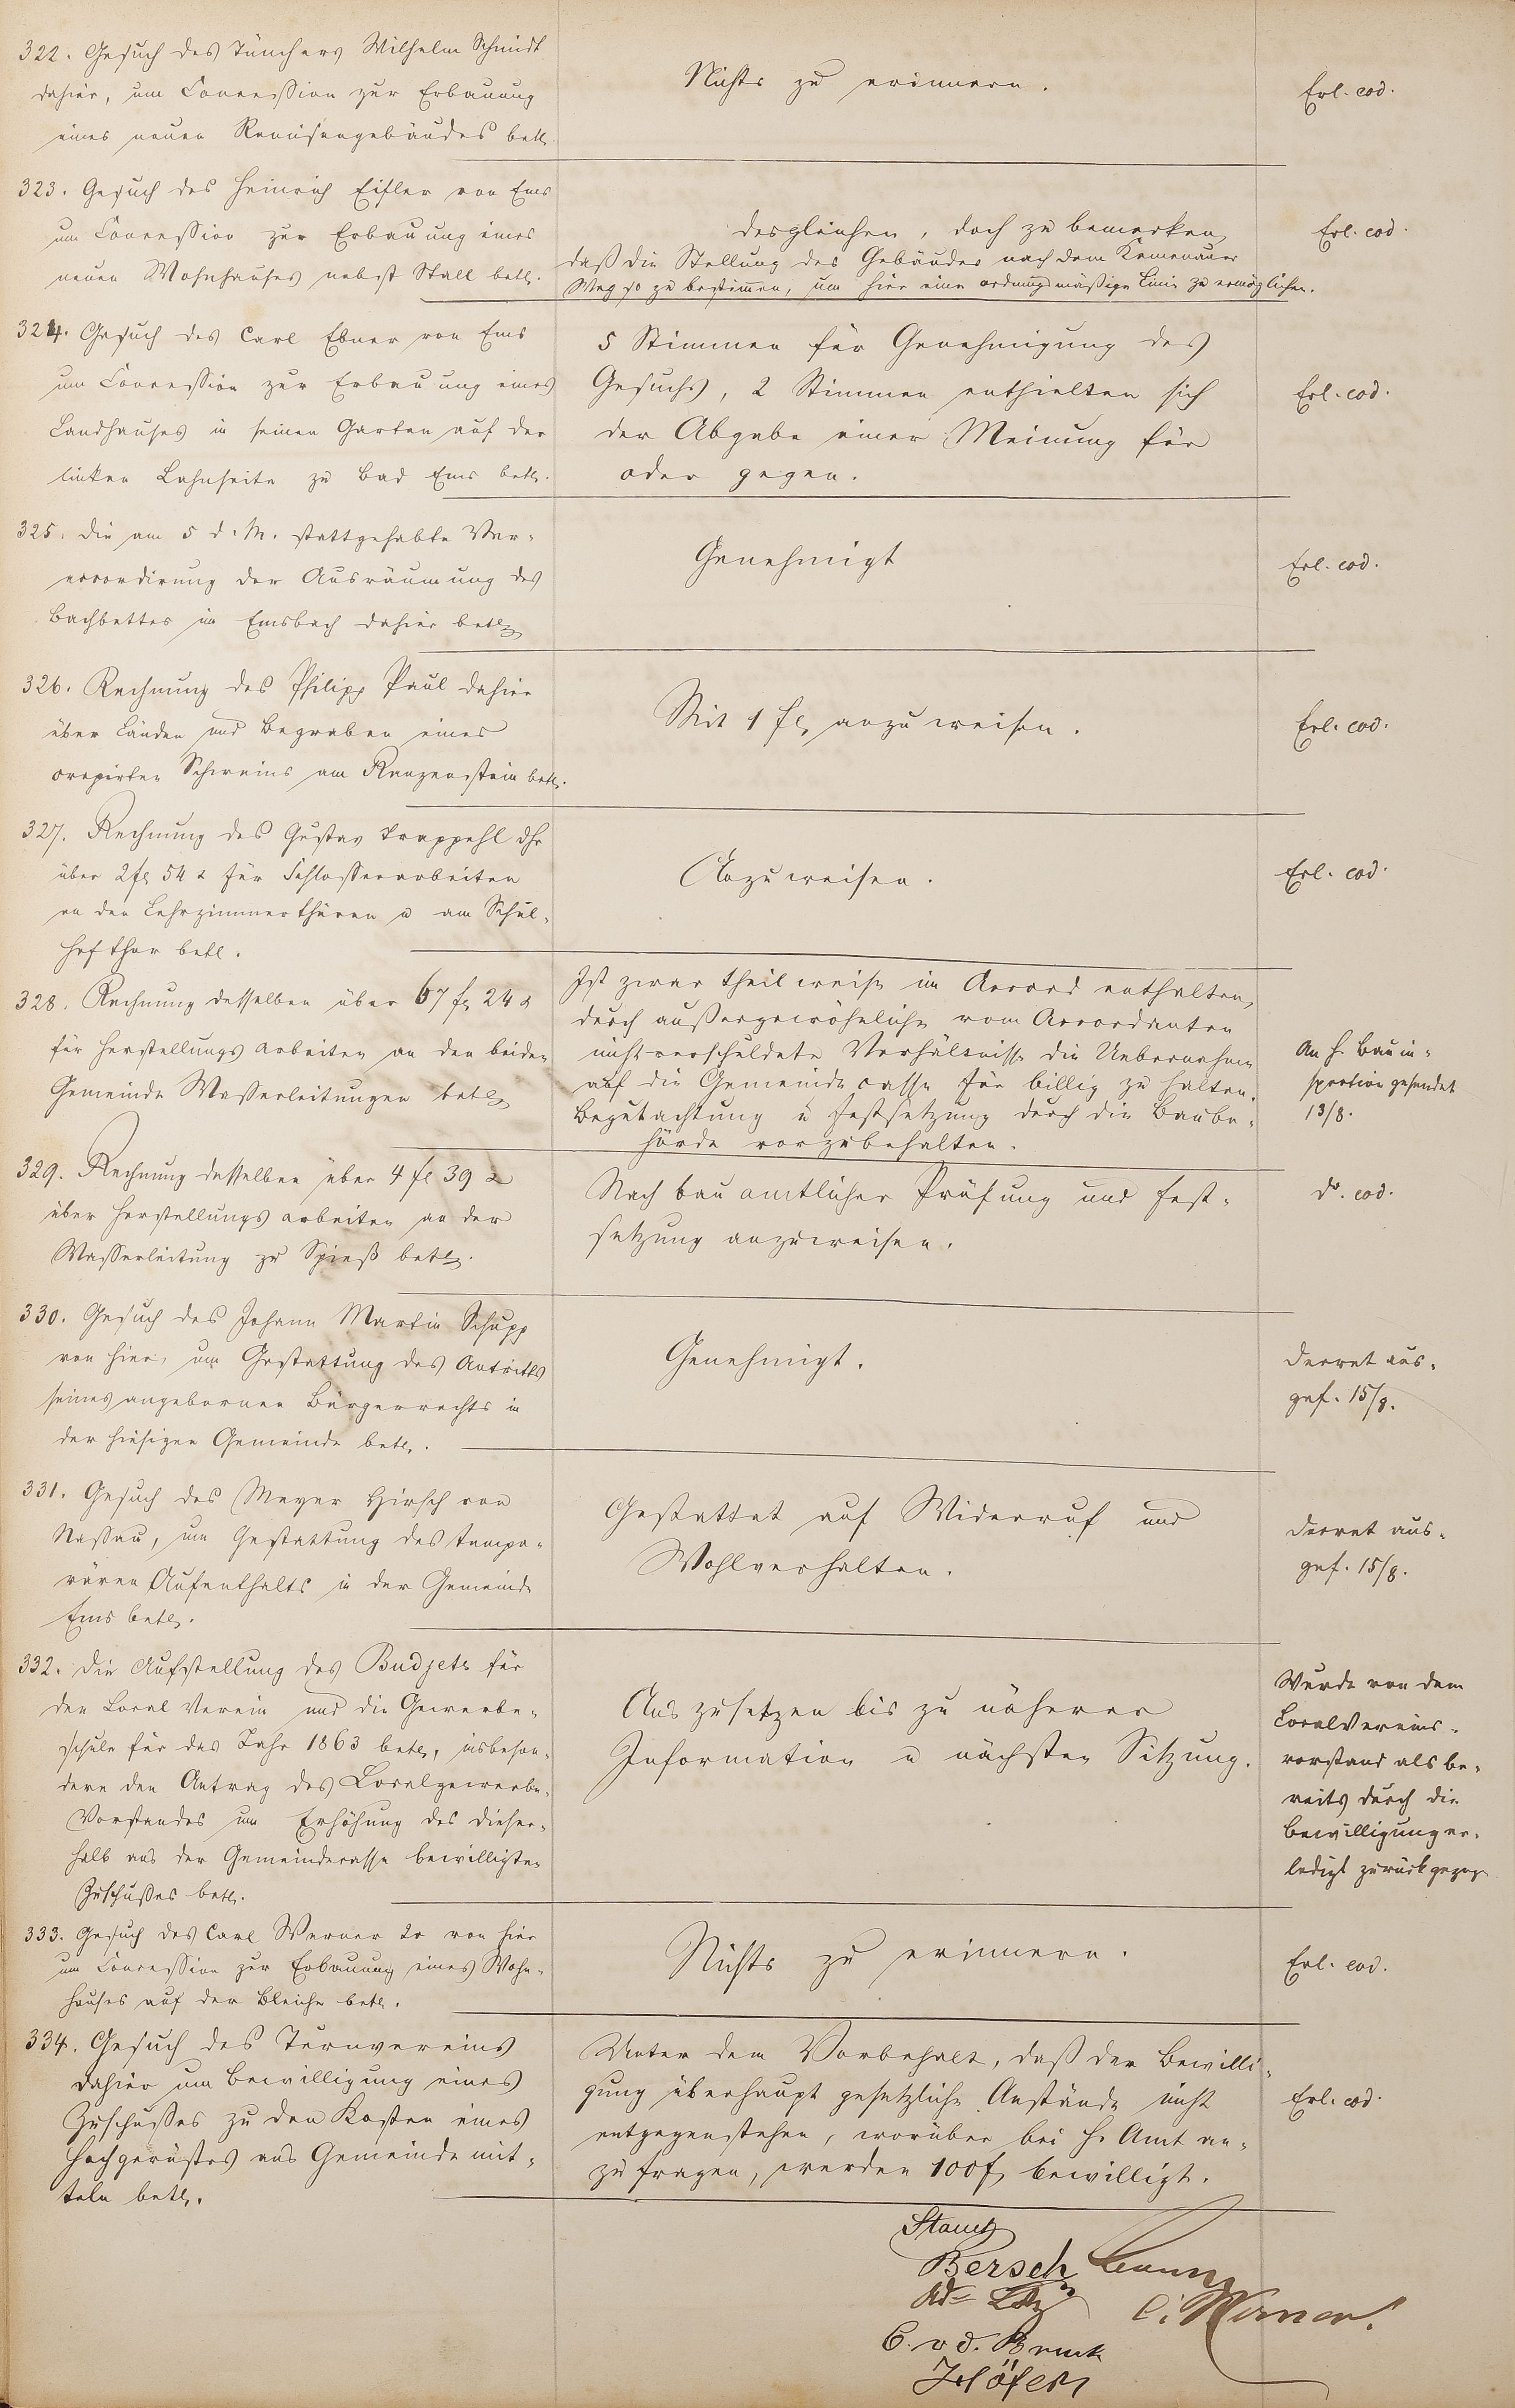 322. Gesuch des Tünchers Wilhelm Schmidt
dahier, um Concession zur Erbauung
eines neuen Remisengebäudes betr.
Nichts zu erinnern.
Erl. eod.
323. Gesuch des Heinrich Eifler von Ems
um Concession zur Erbauung eines
neuen Wohnhauses nebst Stall betr.
desgleichen, doch zu bemerken,
daß die Stellung des Gebäudes nach dem Kemenauer
Weg so zu bestimmen, um hier eine ordnungsmäßige Linie zu ermöglichen.
Erl. eod.
324. Gesuch des Carl Ebner von Ems
um Concession zur Erbauung eines
Landhauses in seinen Garten auf der
linken Lahnseite zu Bad Ems betr.
5 Stimmen für Genehmigung des
Gesuchs, 2 Stimmen enthielten sich
der Abgabe einer Meinung für
oder gegen.
Erl. eod.
325. Die am 5 d. M. stattgehabte Ver-
accordirung der Ausräumung des
Bachbettes im Emsbach dahier betr.
Genehmigt
Erl. eod.
326. Rechnung des Philipp Paul dahier
über Länden und Begraben eines
crepirten Schweins am betr.
Mit 1 fl. anzuweisen.
Erl. eod.
327. Rechnung des Gustav Trappehl dhr
über 2 fl 54 x für Schlosserarbeiten
an den Lehrzimmerthüren u am Schul-
hofthor betr.
Anzuweisen.
Erl. eod.
328. Rechnung desselben über 67 fl 24 x
für Herstellungsarbeiten an den beiden
Gemeinde Wasserleitungen betr.
Ist zwar theilweise im Accord enthalten,
durch außergewöhnliche vom Accordanten
nicht verschuldete Verhältnisse die Uebernahme
auf die Gemeindecasse für billig zu halten.
Begutachtung u Festsetzung durch die Baube-
hörde vorzubehalten.
An H. Bauin-
spection gesendet
13/8.
329. Rechnung desselben über 4 fl 39 x
über Herstellungsarbeiten an der
Wasserleitung zu Spieß betr.
Nach bauamtlicher Prüfung und Fest-
setzung anzuweisen.
do. eod.
330. Gesuch des Johann Martin Schupp
von hier, um Gestattung des Antritts
seines angebornen Bürgerrechts in
der hiesigen Gemeinde betr.
Genehmigt.
Decret aus-
gef. 15/8.
331. Gesuch des Meyer Hirsch von
Nassau, um Gestattung des tempo-
rären Aufenthalts in der Gemeinde
Ems betr.
Gestattet auf Widerruf und
Wohlverhalten.
Decret aus-
gef. 15/8.
332. Die Aufstellung des Budjets für
den Local Verein und die Gewerbe-
schule für das Jahr 1863 betr., insbeson-
dere den Antrag des Localgewerbe-
Vorstandes um Erhöhung des dieser-
halb aus der Gemeindecasse bewilligten
Zuschußes betr.
Auszusetzen bis zu näherer
Information u nächsten Sitzung.
Wurde von dem
Localvereins-
vorstand als be-
reits durch die
Bewilligung er-
ledigt zurückgezog.
333. Gesuch des Carl Werner 2r von hier
um Concession zur Erbauung eines Wohn-
hauses auf der Bleiche betr.
Nichts zu erinnern.
Erl. eod.
334. Gesuch des Turnvereins
dahier um Bewilligung eines
Zuschußes zu den Kosten eines
Hochgerüstes aus Gemeindemit-
teln betr.
Unter dem Vorbehalt, daß der Bewilli-
gung überhaupt gesetzliche Anstände nicht
entgegenstehen, worüber bei H. Amt an-
zufragen, werden 100 f. bewilligt.
Erl. eod.
Bersch
C. Werner.
C. v d. Bruck
Höfer